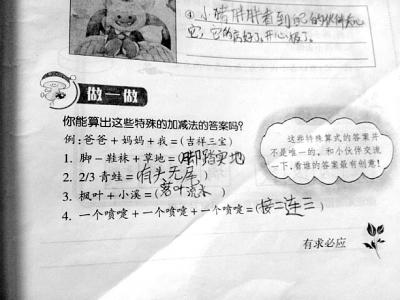 ④小猪胖胖看到自己的伙伴关心
它，它的病好了，开心极了。
做一做
你能算出这些特殊的加减法的答案吗？
例：爸爸+妈妈+我=（吉祥三宝）
1. 脚－鞋袜+草地=（脚踏实地）
2. 2/3 青蛙=（有头无尾）
3. 枫叶+小溪=（落叶流水）
4. 一个喷嚏+一个喷嚏+一个喷嚏=（接二连三）
这些特殊算式的答案并
不是唯一的，和小伙伴交流
一下，看谁的答案最有创意！
有求必应